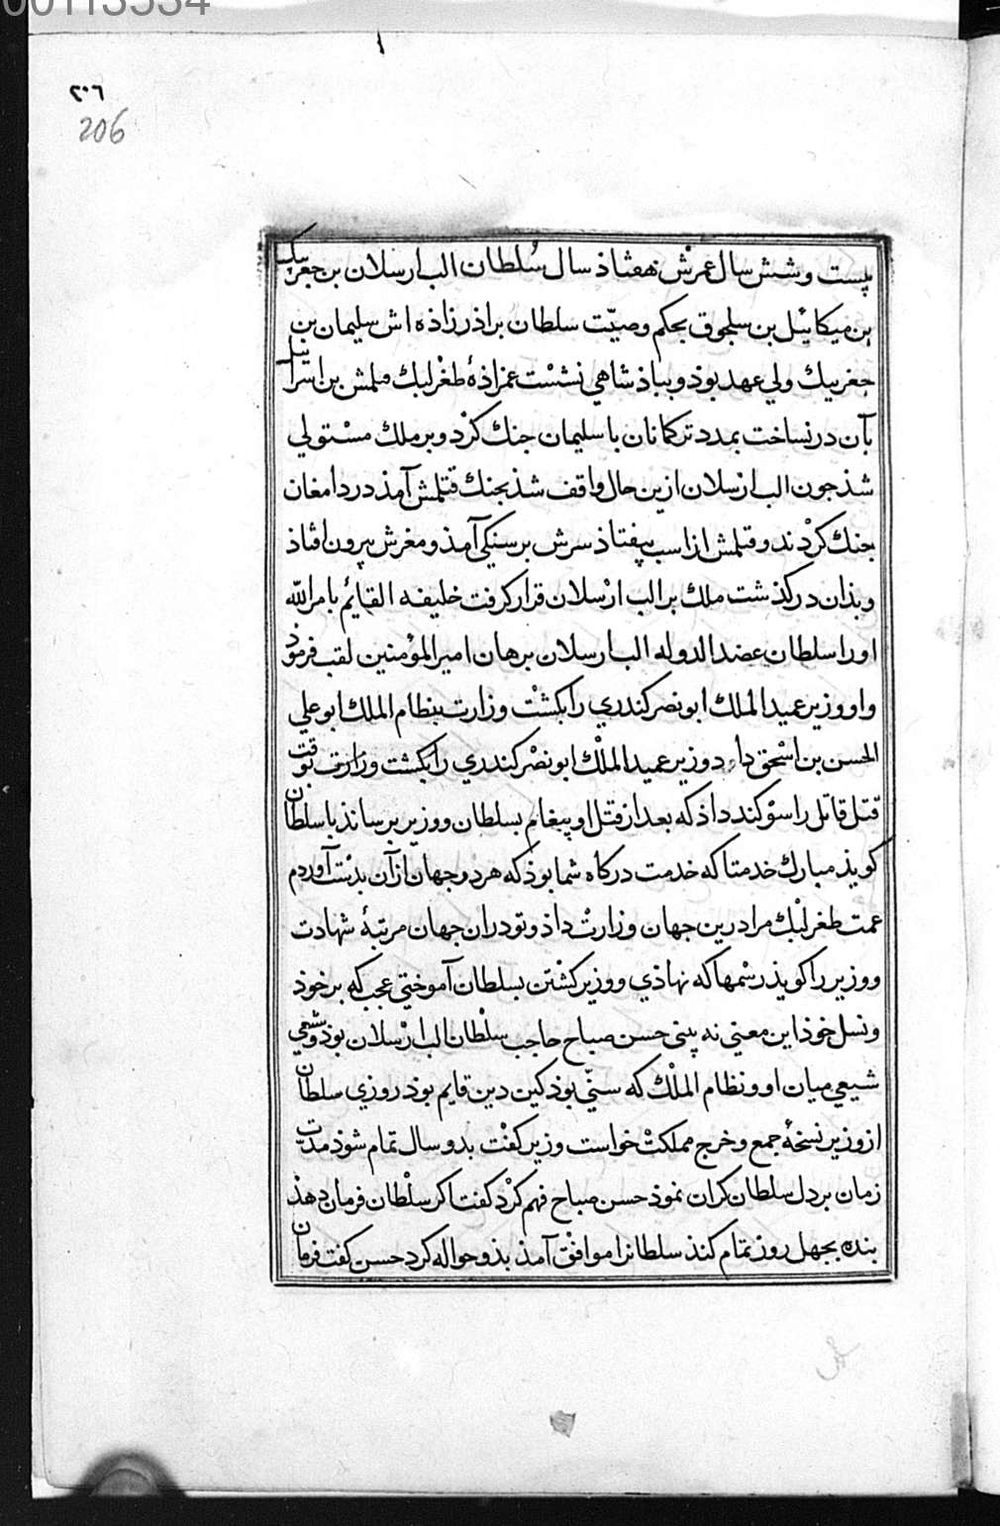 00113534
٢٠٦
206
بیست و شش سال عمرش هفتاذ سال سُلطان الب ارسلان بن جغربیک
بن میکائیل بن سلجوق بحکم وصیّت سلطان براذرزاذه اش سلیمان بن
جغربیك ولي عهد بوذ و بباذشاهي نشست عمزاذهٔ طغرلبك قتلمش بن اسرائیل
بآن درنساخت بمدد ترکمانان با سلیمان جنك کرد و بر ملك مستولي
شذ جون الب ارسلان ازین حال واقف شذ بجنك قتلمش آمذ در دامغان
جنك کردند و قتلمش از اسب بیفتاذ سرش بر سنکی آمذ و مغزش بیرون افتاذ
و بذان درکذشت ملك بر الب ارسلان قرار کرفت خلیفه القایم بامرالله
اورا سلطان عضد الدوله الب ارسلان برهان امیر المؤمنین لقب فرموذ
و او وزیر عمید الملك ابو نصر کندري را بکشت وزارت بنظام الملك ابو علي
الحسن بن اسحق داد وزیر عمید الملك ابو نصر کندري را بکشت وزارت بوقت
قتل قاتل را سوکند داذ که بعد از قتل او پیغام بسلطان و وزیر برساند با سلطان
کویذ مبارك خدمتا که خدمت درکاه شما بوذ که هر دو جهان از آن بدست آوردم
عمت طغرلبك مرا درین جهان وزارت داذ و تو در ان جهان مرتبهٔ شهادت
و وزیر را کویذ رسمها که نهاذي و وزیر کشتن بسلطان آموختي عجب که بر خوذ
و نسل خوذ این معني نه بیني حسن صباح حاجب سلطان الب ارسلان بوذ و شیعي
شیعي میان او و نظام الملك که سنّي بوذ کین دین قایم بوذ روزي سلطان
از وزیر نسخهٔ جمع و خرج مملکت خواست وزیر کفت بدو سال تمام شوذ مدت
زمان بر دل سلطان کران نموذ حسن صباح فهم کرد کفت اکر سلطان فرمان دهذ
بنده بجهل روز تمام کنذ سلطانرا موافق آمذ بذو حواله کرد حسن کفت فرمان